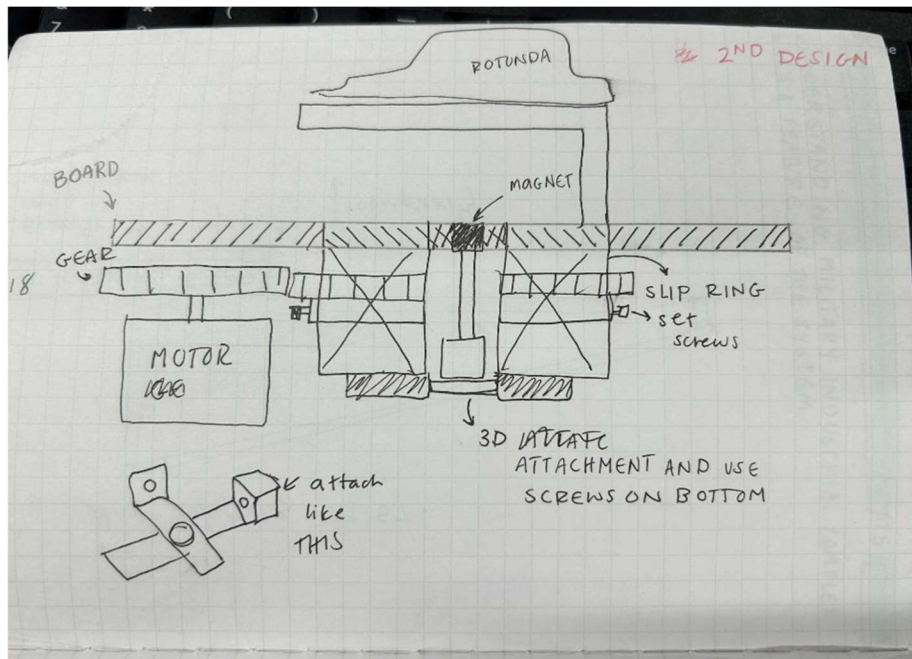 2ND DESIGN
ROTUNDA
BOARD
MAGNET
GEAR
18
SLIP RING
set
screws
MOTOR
3D
ATTACHMENT AND USE
SCREWS ON BOTTOM
attach
like
THIS